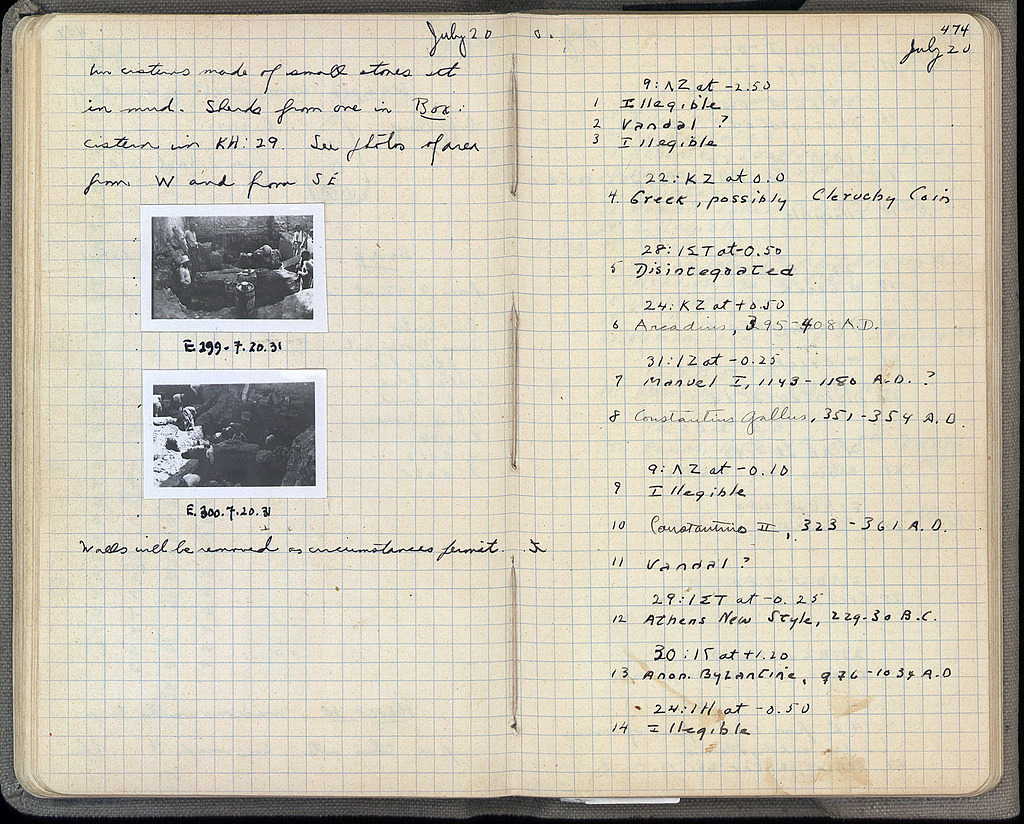 July 20
two cisterns made of small stones set
in mud. Sherds from one in Box:
cistern in KH: 29. See photos of area
from W and from SE
E 299-7.20.31
E.300.7.20.31
Walls will be removed as circumstances permit.
474
July 20
9: ΛΖ at -2.50
1 Illegible
2 Vandal ?
3 Illegible
22: ΚΖ at 0.0
4. Greek, possibly Cleruchy Coin
28: ΙΣΤ at -0.50
5 Disintegrated
24: ΚΖ at +0.50
6 Arcadius, 395-408 A.D.
31: ΙΖ at -0.25
7 Manuel I, 1143-1180 A.D. ?
8 Constantius Gallus, 351-354 A.D.
9: ΛΖ at -0.10
9 Illegible
10 Constantius II, 323-361 A.D.
11 Vandal ?
29: ΙΣΤ at -0.25
12 Athens New Style, 229-30 B.C.
30: ΙΓ at +1.20
13 Anon. Byzantine, 976-1034 A.D
24: ΙΗ at -0.50
14 Illegible